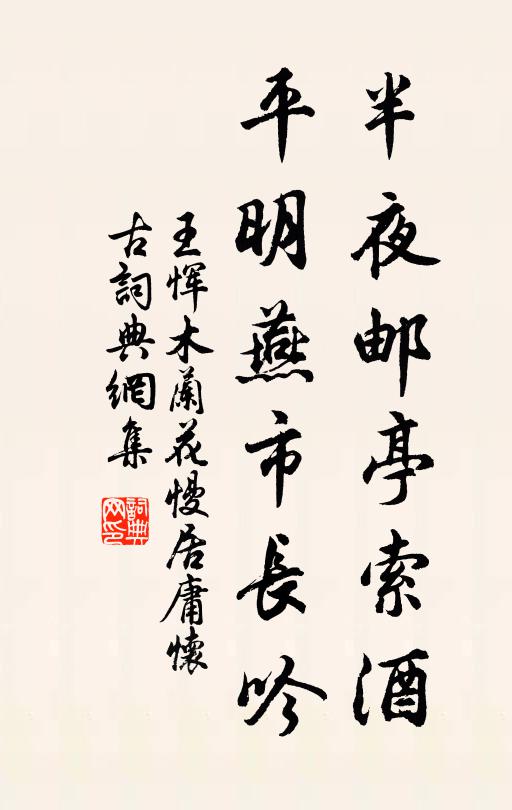 半夜邮亭索酒
平明燕市長吟
王恽木蘭花慢居庸懷
古詞典網集
詞典
网印